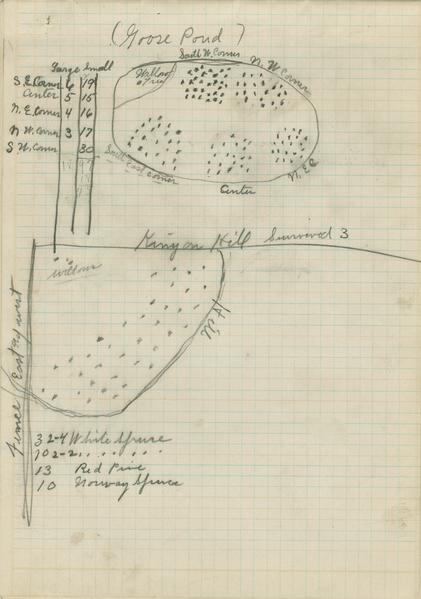 1
(Goose Pond)
South W. Corner
N. W Corner
Large Small
S. E. Corner 6 19
Center 5 15
N. E. Corner 4 16
N W. Corner 3 17
S W. Corner 30
Willow
South East corner
Center
N. E
Kinyon Hill Survived 3
willows
Hill
Fence East & west
3 2-4 White Spruce
10 2-2 " " " "
13 Red Pine
10 Norway Spruce